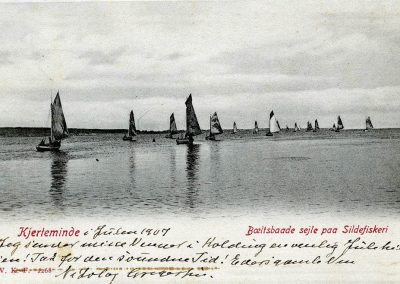 Kjerteminde i Julen 1907 Bæltsbaade sejle paa Sildefiskeri
Jeg sender mine Venner i Kolding en venlig Julehil
sen! Tak for den svundne Tid! Eders gamle Ven
V. K. F.